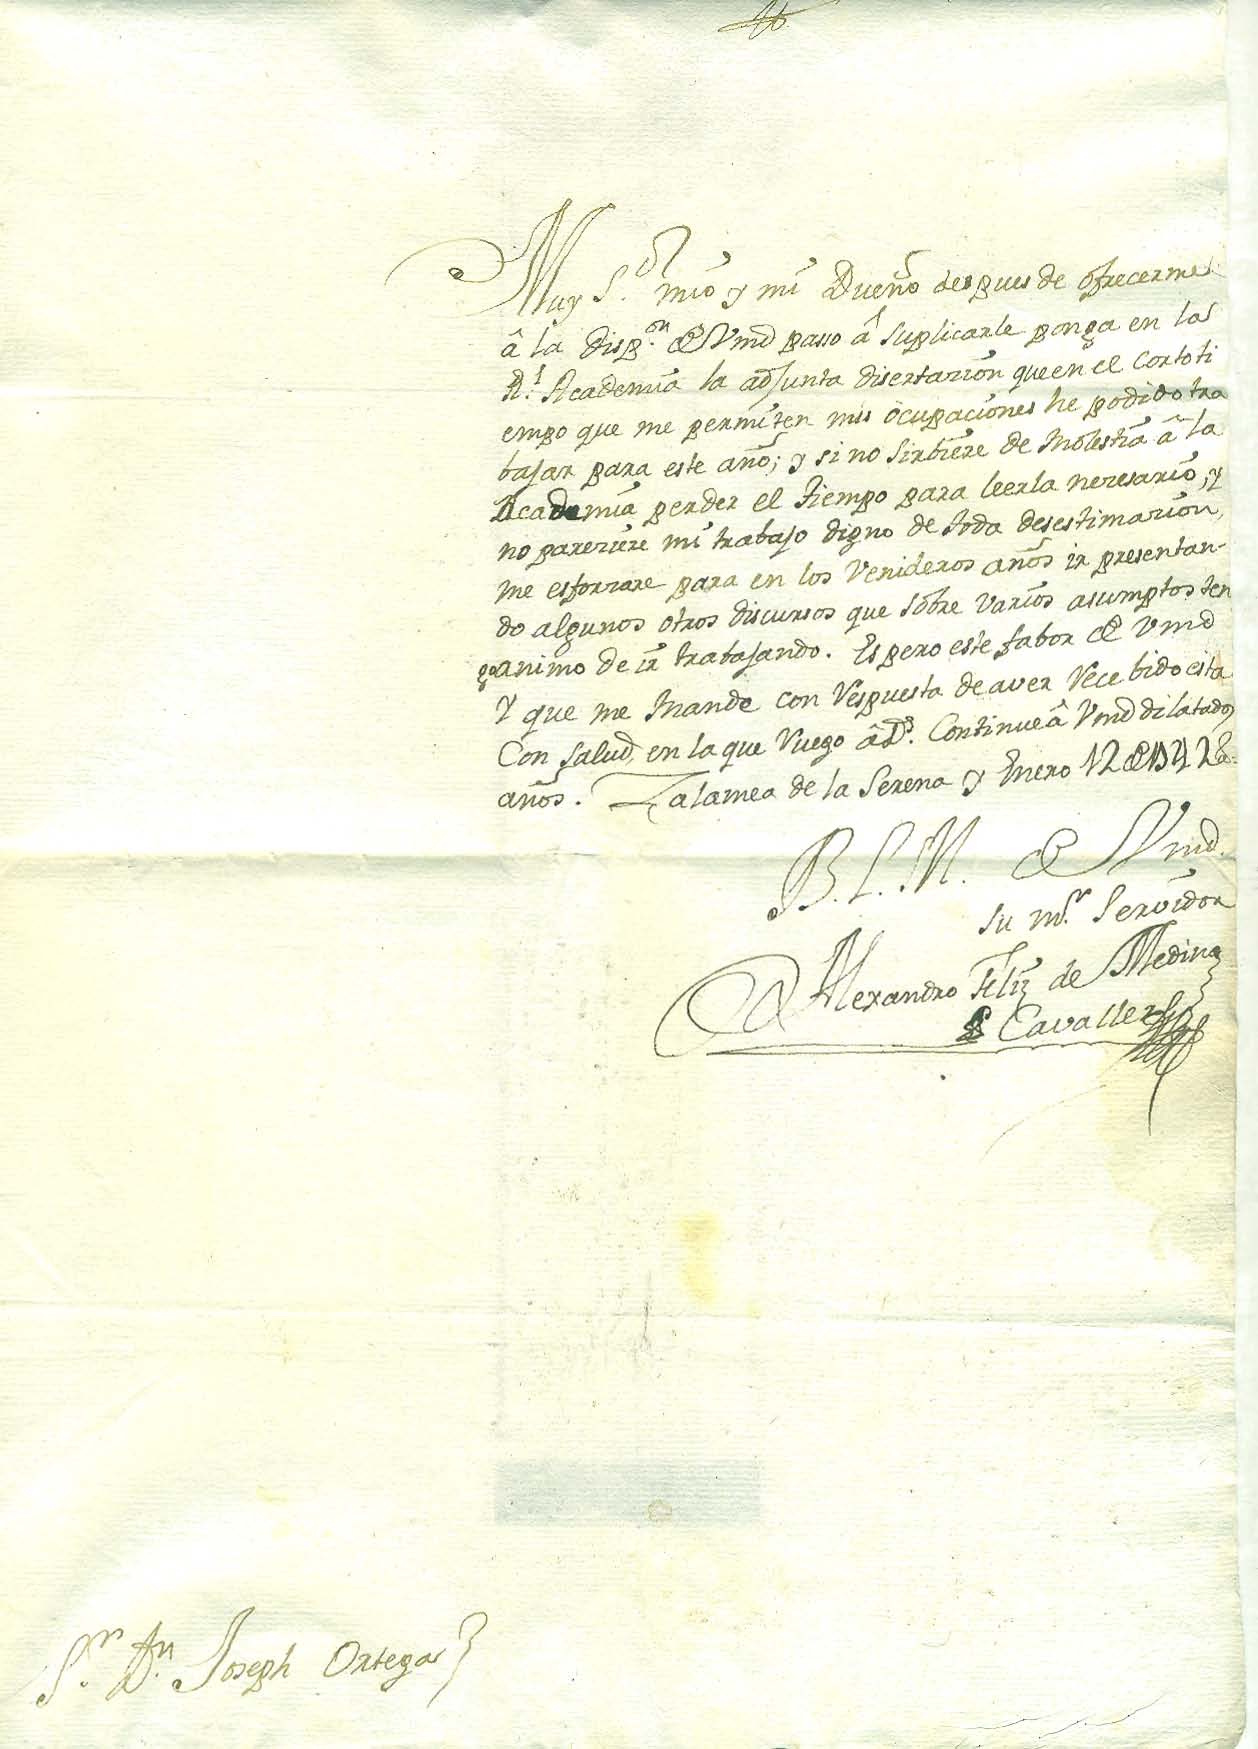 Muy S.or mio y mi Dueño despues de ofrecerme
â la disp.on de Vmd passo â suplicarle ponga en las
R.l Academia la adjunta disertazion que en el corto ti
empo que me permiten mis ocupaciones he podido tra
bajar para este año; y si no sirbiere de molestia â la
Academia perder el tiempo para leerla nezesario, y
no pareziere mi trabajo digno de toda desestimazion,
me esforzare para en los venideros años ir presentan-
do algunos otros discursos que sobre varios asumptos ten
go animo de ir trabajando. Espero este fabor de Vmd
Y que me mande con respuesta de aver recebido esta
Con salud, en la que ruego â D.s Continue â Vmd dilatados
años. Zalamea de la Serena y Enero 12 de 1742
B. L. M. de Vmd.
su m.r Servidor
Alexandro Feliz de Medina
Cavallero
S.r D.n Joseph Ortega